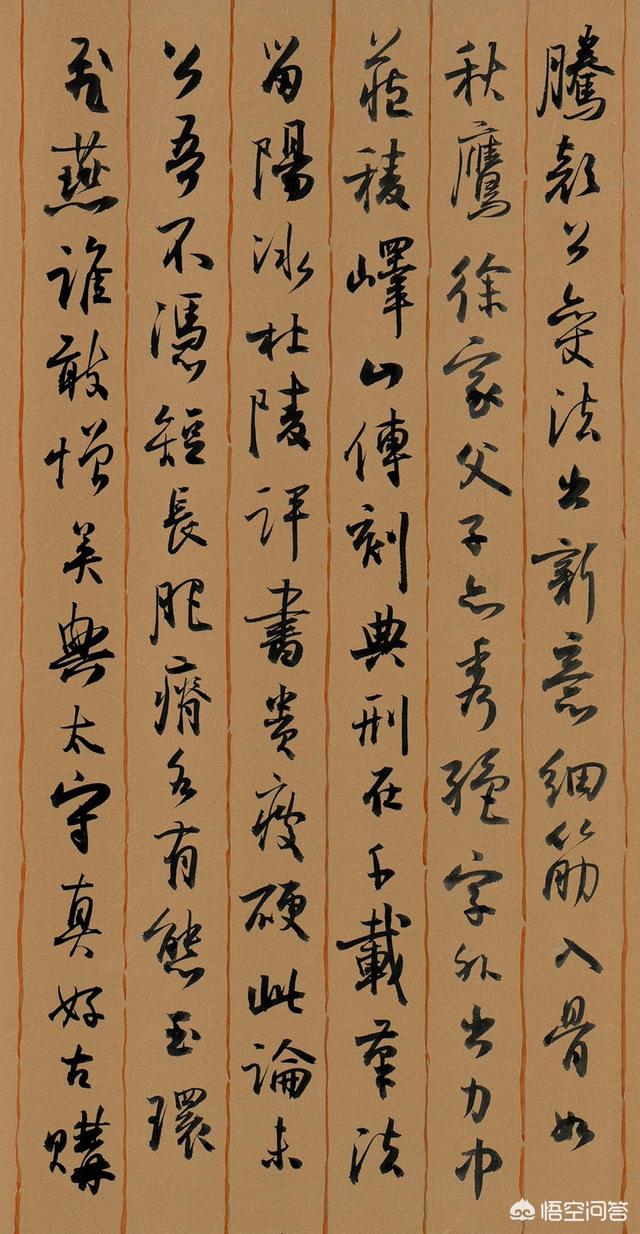 騰顏公變法出新意細筋入骨如
秋鷹徐家父子亦秀絕字外出力中
藏稜嶧山傳刻典刑在千載筆法
留陽冰杜陵評書貴瘦硬此論未
公吾不憑短長肥瘠各有態玉環
飛燕誰敢憎吳興太守真好古購
悟空问答